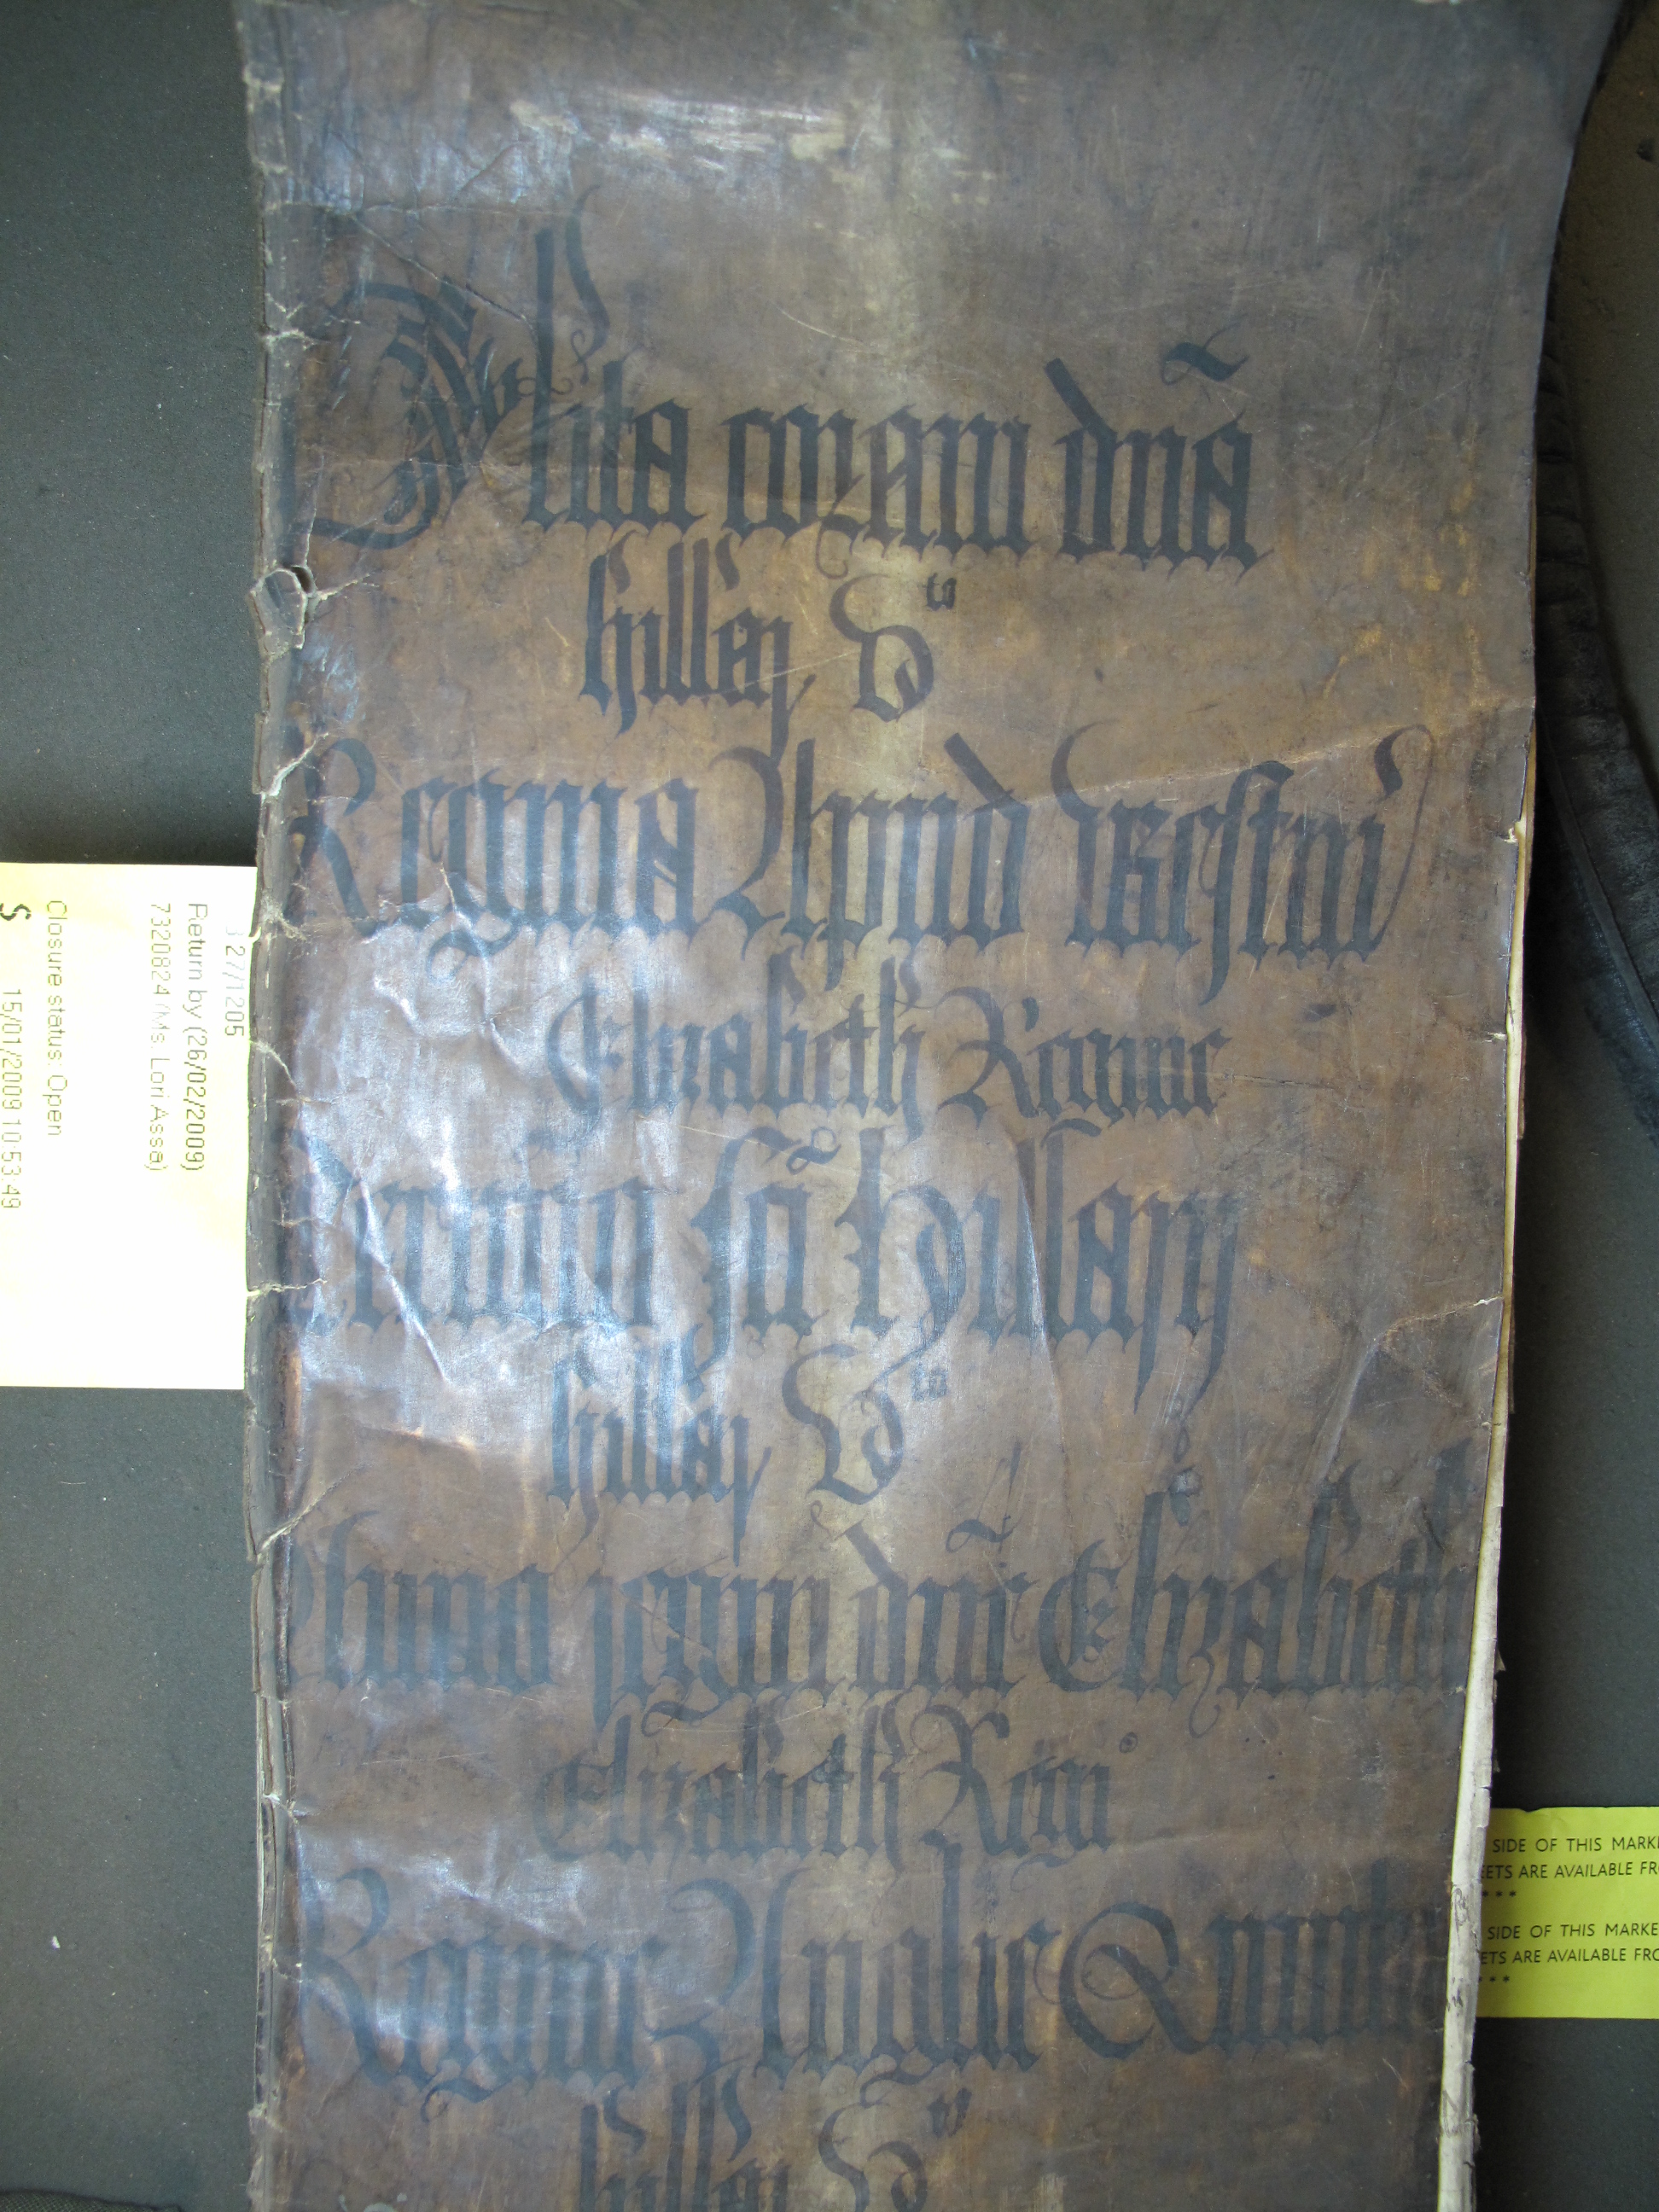 Plita coram dña
hillarij Vto
Regina Apud Westm
Elizabeth Regine
Termino sĉi hyllarij
hillarij Vto
Anno regni dñe Elizabeth
Elizabeth Regi
Regine Anglie Quinto
hillarij Vto
27/1205
Return by (26/02/2009)
7320824 (Ms. Lori Assa)
Closure status: Open
S 15/01/2009 10:53:49
SIDE OF THIS MARKE
ETS ARE AVAILABLE FRO
***
SIDE OF THIS MARKE
ETS ARE AVAILABLE FRO
***